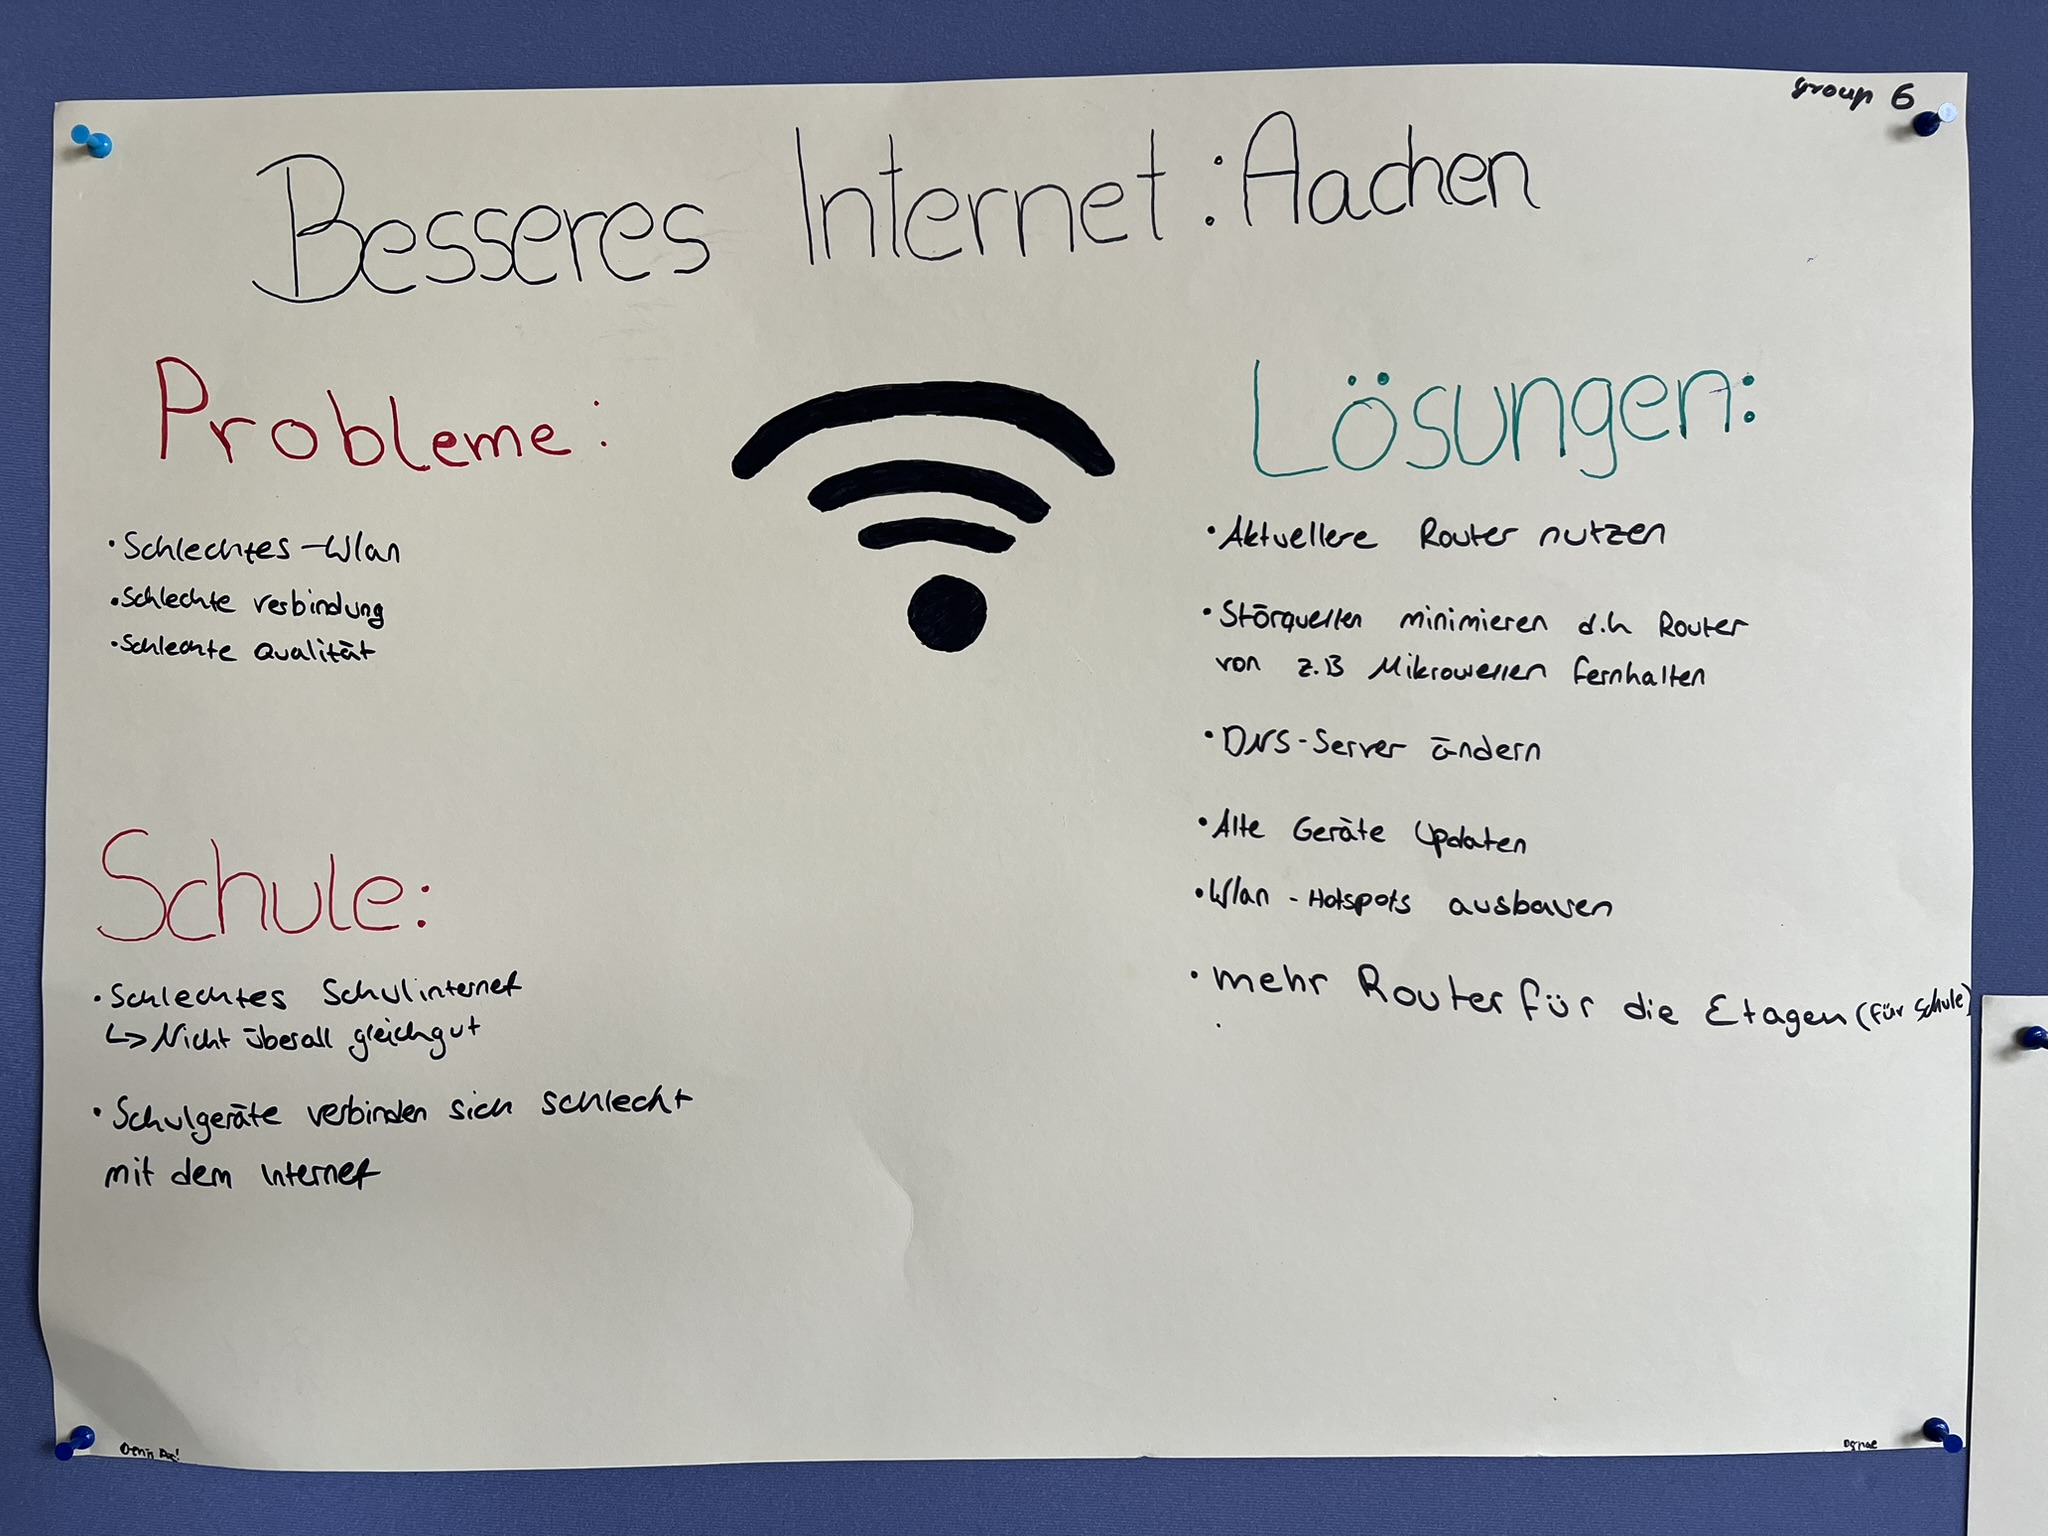 group 6
Besseres Internet: Aachen
Probleme:
• Schlechtes-Wlan
• Schlechte verbindung
• Schlechte Qualität
Schule:
• Schlechtes Schulinternet
↳ Nicht überall gleichgut
• Schulgeräte verbinden sich schlecht
mit dem Internet
Lösungen:
• Aktuellere Router nutzen
• Störquellen minimieren d.h Router
von z.B Mikrowellen fernhalten
• DNS-Server ändern
• Alte Geräte Updaten
• Wlan-Hotspots ausbauen
• mehr Router für die Etagen (für Schule)